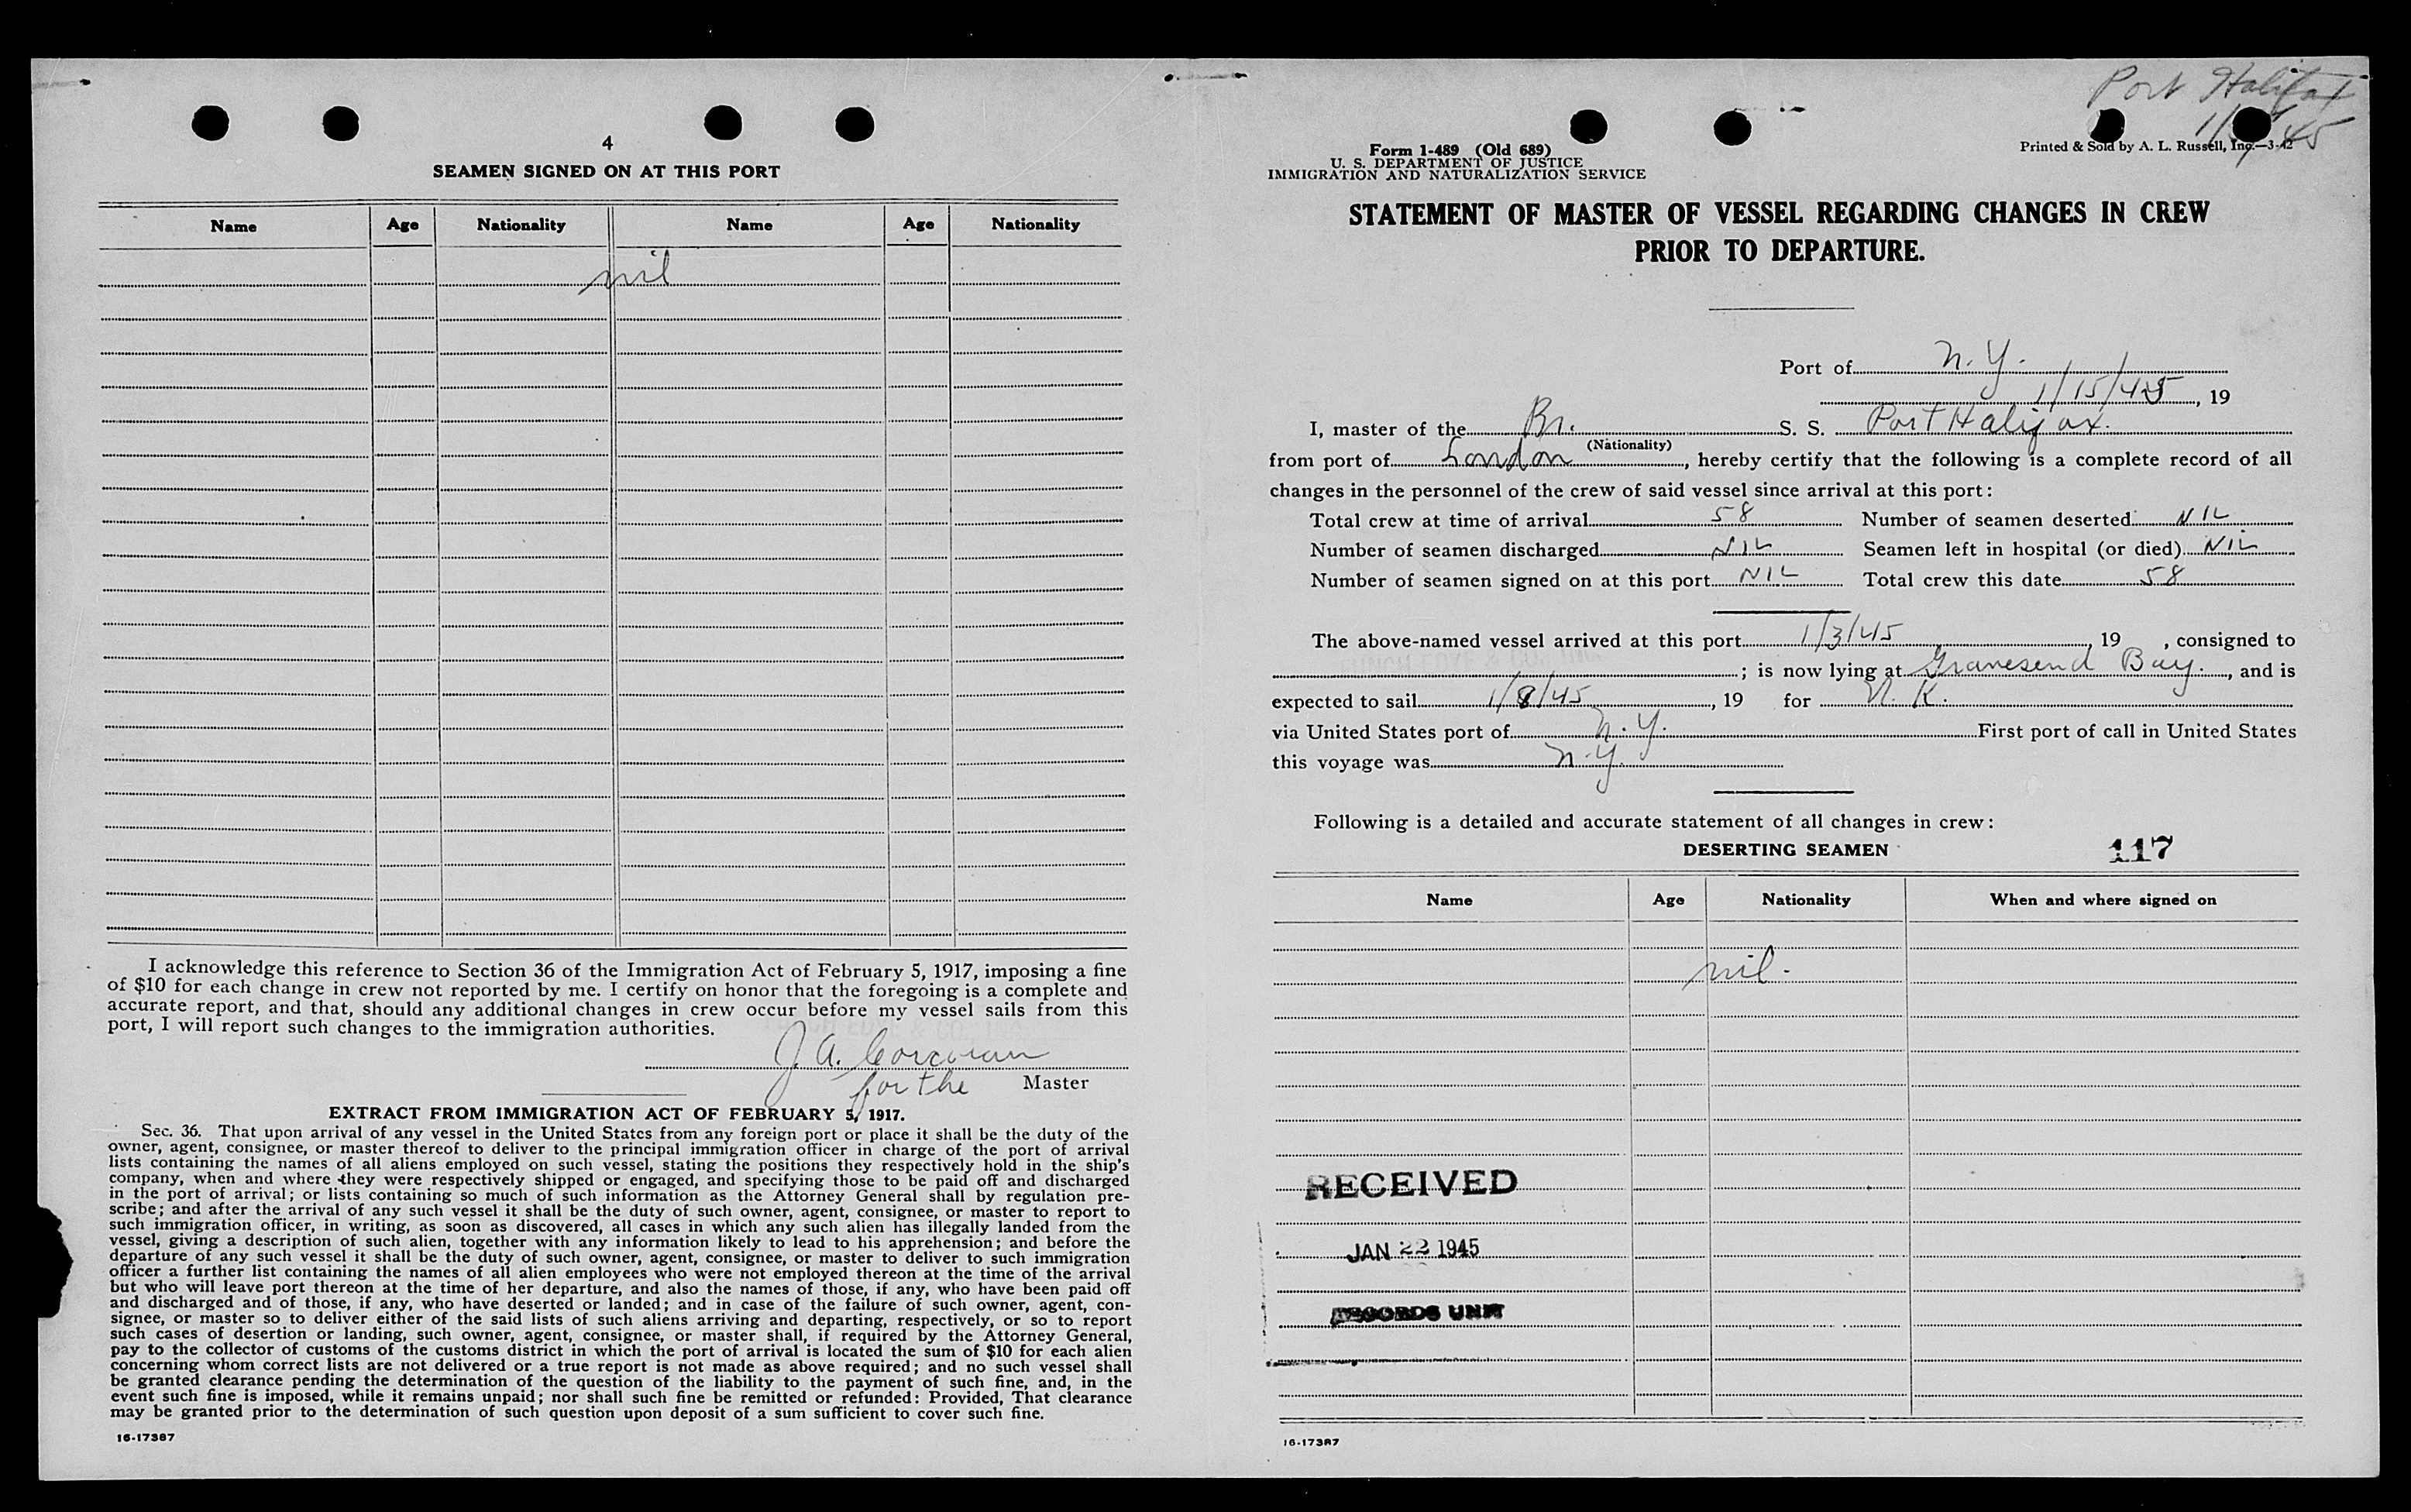 4
SEAMEN SIGNED ON AT THIS PORT
Name Age Nationality Name Age Nationality
nil
I acknowledge this reference to Section 36 of the Immigration Act of February 5, 1917, imposing a fine
of $10 for each change in crew not reported by me. I certify on honor that the foregoing is a complete and
accurate report, and that, should any additional changes in crew occur before my vessel sails from this
port, I will report such changes to the immigration authorities.
J. A. Corcoran
for the Master
EXTRACT FROM IMMIGRATION ACT OF FEBRUARY 5, 1917.
Sec. 36. That upon arrival of any vessel in the United States from any foreign port or place it shall be the duty of the
owner, agent, consignee, or master thereof to deliver to the principal immigration officer in charge of the port of arrival
lists containing the names of all aliens employed on such vessel, stating the positions they respectively hold in the ship's
company, when and where they were respectively shipped or engaged, and specifying those to be paid off and discharged
in the port of arrival; or lists containing so much of such information as the Attorney General shall by regulation pre-
scribe; and after the arrival of any such vessel it shall be the duty of such owner, agent, consignee, or master to report to
such immigration officer, in writing, as soon as discovered, all cases in which any such alien has illegally landed from the
vessel, giving a description of such alien, together with any information likely to lead to his apprehension; and before the
departure of any such vessel it shall be the duty of such owner, agent, consignee, or master to deliver to such immigration
officer a further list containing the names of all alien employees who were not employed thereon at the time of the arrival
but who will leave port thereon at the time of her departure, and also the names of those, if any, who have been paid off
and discharged and of those, if any, who have deserted or landed; and in case of the failure of such owner, agent, con-
signee, or master so to deliver either of the said lists of such aliens arriving and departing, respectively, or so to report
such cases of desertion or landing, such owner, agent, consignee, or master shall, if required by the Attorney General,
pay to the collector of customs of the customs district in which the port of arrival is located the sum of $10 for each alien
concerning whom correct lists are not delivered or a true report is not made as above required; and no such vessel shall
be granted clearance pending the determination of the question of the liability to the payment of such fine, and, in the
event such fine is imposed, while it remains unpaid; nor shall such fine be remitted or refunded: Provided, That clearance
may be granted prior to the determination of such question upon deposit of a sum sufficient to cover such fine.
16-17387
Port Halifax
Form 1-489 (Old 689)
U. S. DEPARTMENT OF JUSTICE
IMMIGRATION AND NATURALIZATION SERVICE
Printed & Sold by A. L. Russell, Inc.—3-42
STATEMENT OF MASTER OF VESSEL REGARDING CHANGES IN CREW
PRIOR TO DEPARTURE.
Port of N.Y.
1/15/45, 19
I, master of the Br. S. S. Port Halifax.
(Nationality)
from port of London, hereby certify that the following is a complete record of all
changes in the personnel of the crew of said vessel since arrival at this port:
Total crew at time of arrival 58 Number of seamen deserted NIL
Number of seamen discharged NIL Seamen left in hospital (or died) NIL
Number of seamen signed on at this port NIL Total crew this date 58
The above-named vessel arrived at this port 1/3/45, 19 , consigned to
; is now lying at Gravesend Bay., and is
expected to sail 1/8/45, 19 for
via United States port of N.Y. First port of call in United States
this voyage was N.Y.
Following is a detailed and accurate statement of all changes in crew:
DESERTING SEAMEN 117
Name Age Nationality When and where signed on
nil.
RECEIVED
JAN 22 1945
RECORDS UNIT
16-17387